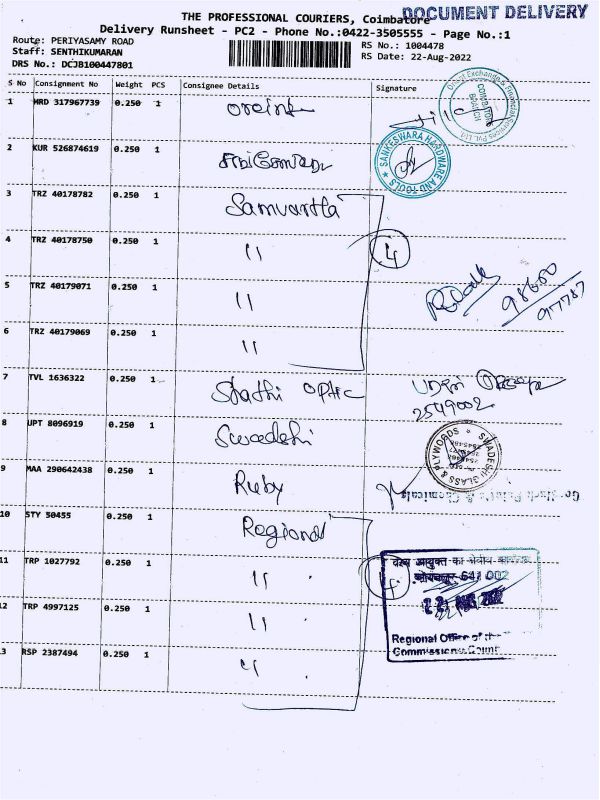 DOCUMENT DELIVERY
THE PROFESSIONAL COURIERS, Coimbatore
Delivery Runsheet - PC2 - Phone No.:0422-3505555 - Page No.:1
Route: PERIYASAMY ROAD
RS No.: 1004478
Staff: SENTHIKUMARAN
RS Date: 22-Aug-2022
DRS No.: DCJB100447801
S No Consignment No Weight PCS Consignee Details Signature
1 MRD 317967739 0.250 1
2 KUR 526874619 0.250 1
SANKESWARA HARDWARE AND TOOLS
3 TRZ 40178782 0.250 1 Samvartha
4 TRZ 40178750 0.250 1 " 4
5 TRZ 40179071 0.250 1 "
6 TRZ 40179069 0.250 1 "
7 TVL 1636322 0.250 1
2549002
8 UPT 8096919 0.250 1 Swadeshi
SWADESHI GLASS & PLYWOODS
9 MAA 290642438 0.250 1 Ruby
10 STY 50455 0.250 1 Regional
11 TRP 1027792 0.250 1 "
12 TRP 4997125 0.250 1 "
13 RSP 2387494 0.250 1 "
641 002
Regional Office of the